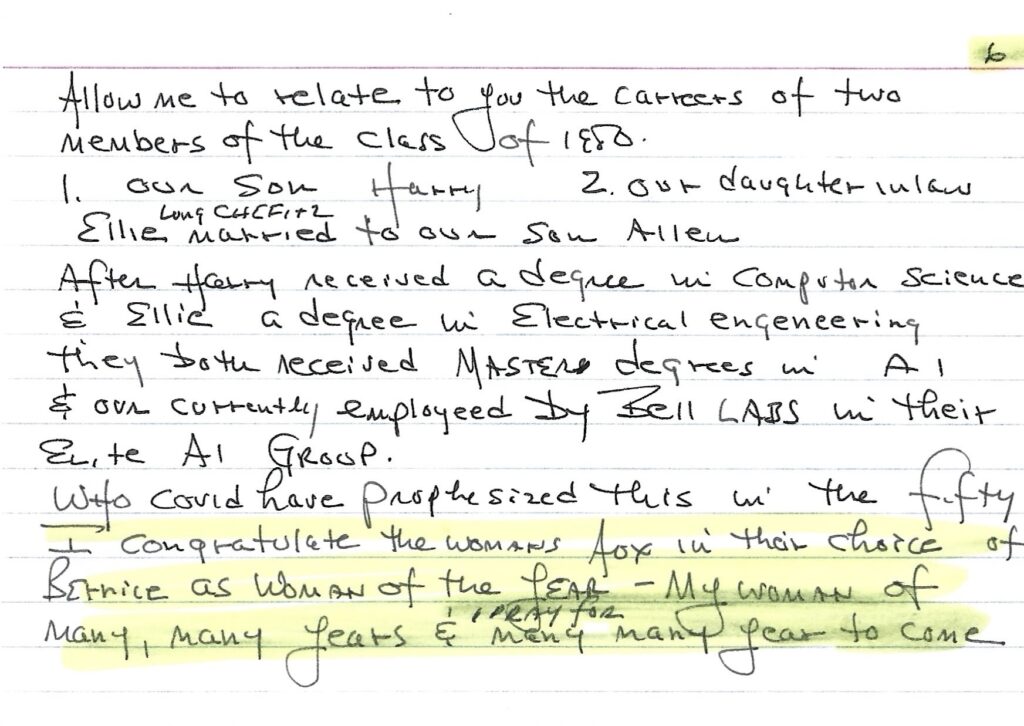 6
Allow me to relate to you the carreers of two
members of the class of 1980.
1. our Son Harry 2. our daughter in law
Ellie married to our son Allen
After Harry received a degree in Computer Science
& Ellie a degree in Electrical engeneering
they both received MASTERS degrees in AI
& our currently employeed by Bell LABS in their
Elite AI GROUP.
Who could have prophesized this in the fifty
I congratulate the womans in their choice of
Bernice as WOMAN of the YEAR - My WOMAN of
I PRAY for
many, many years & many many year to come